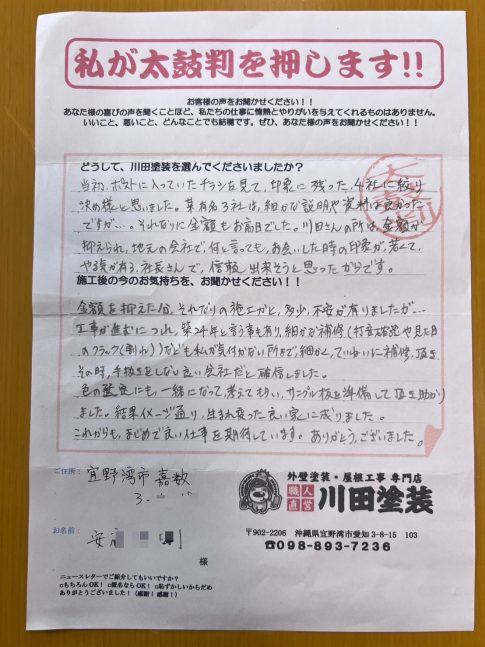 私が太鼓判を押します!!
お客様の声をお聞かせください！！
あなた様の喜びの声を聞くことほど、私たちの仕事に情熱とやりがいを与えてくれるものはありません。
いいこと、悪いこと、どんなことでも結構です。ぜひ、あなた様の声をお聞かせください！！
どうして、川田塗装を選んでくださいましたか？
当初、ポストに入っていたチラシを見て、印象に残った、4社に絞り
決め様と思いました。某有名3社は、細かな説明や資料は良かった
ですが…。それなりに金額もお高目でした。川田さんの所は、金額が
抑えられ、地元の会社で、何と言っても、お会いした時の印象が、若くて、
やる気が有る、社長さんで、信頼、出来そうと思ったからです。
施工後の今のお気持ちを、お聞かせください！！
金額を抑えた分、それなりの施工かと、多少、不安が有りましたが…
工事が進むにつれ、築24年と言う事も有り、細かな補修(打音確認や見た目
のクラック(割れ))なども私が気付かない所まで、細かく、ていねいに補修、頂き
その時、手抜きをしない良い会社だと確信しました。
色の選定にも、一緒になって、考えてもらい、サンプル板を準備して頂き助かり
ました。結果イメージ通り、生まれ変った良い家に成りました。
これからも、まじめで良い仕事を期待しています。ありがとうございました。
ご住所： 宜野湾市 嘉数
3-
外壁塗装・屋根工事 専門店
職人直営 川田塗装
〒902-2206 沖縄県宜野湾市愛知 3-8-15 103
☎098-893-7236
お名前： 安
様
ニュースレターでご紹介してもいいですか？
□もちろんOK！ □匿名ならOK！ □恥ずかしいからだめ
ありがとうございました！（感謝！感謝！）